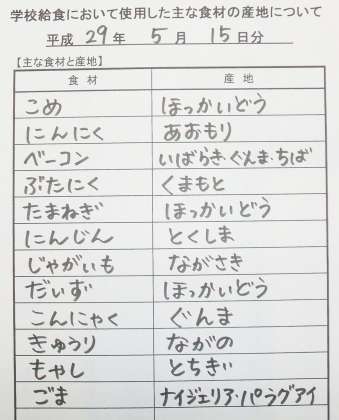 学校給食において使用した主な食材の産地について
平成 29 年 5 月 15 日分
【主な食材と産地】
食 材 産 地
こめ ほっかいどう
にんにく あおもり
ベーコン いばらき・ぐんま・ちば
ぶたにく くまもと
たまねぎ ほっかいどう
にんじん とくしま
じゃがいも ながさき
だいず ほっかいどう
こんにゃく ぐんま
きゅうり ながの
もやし とちぎ
ごま ナイジェリア・パラグアイ